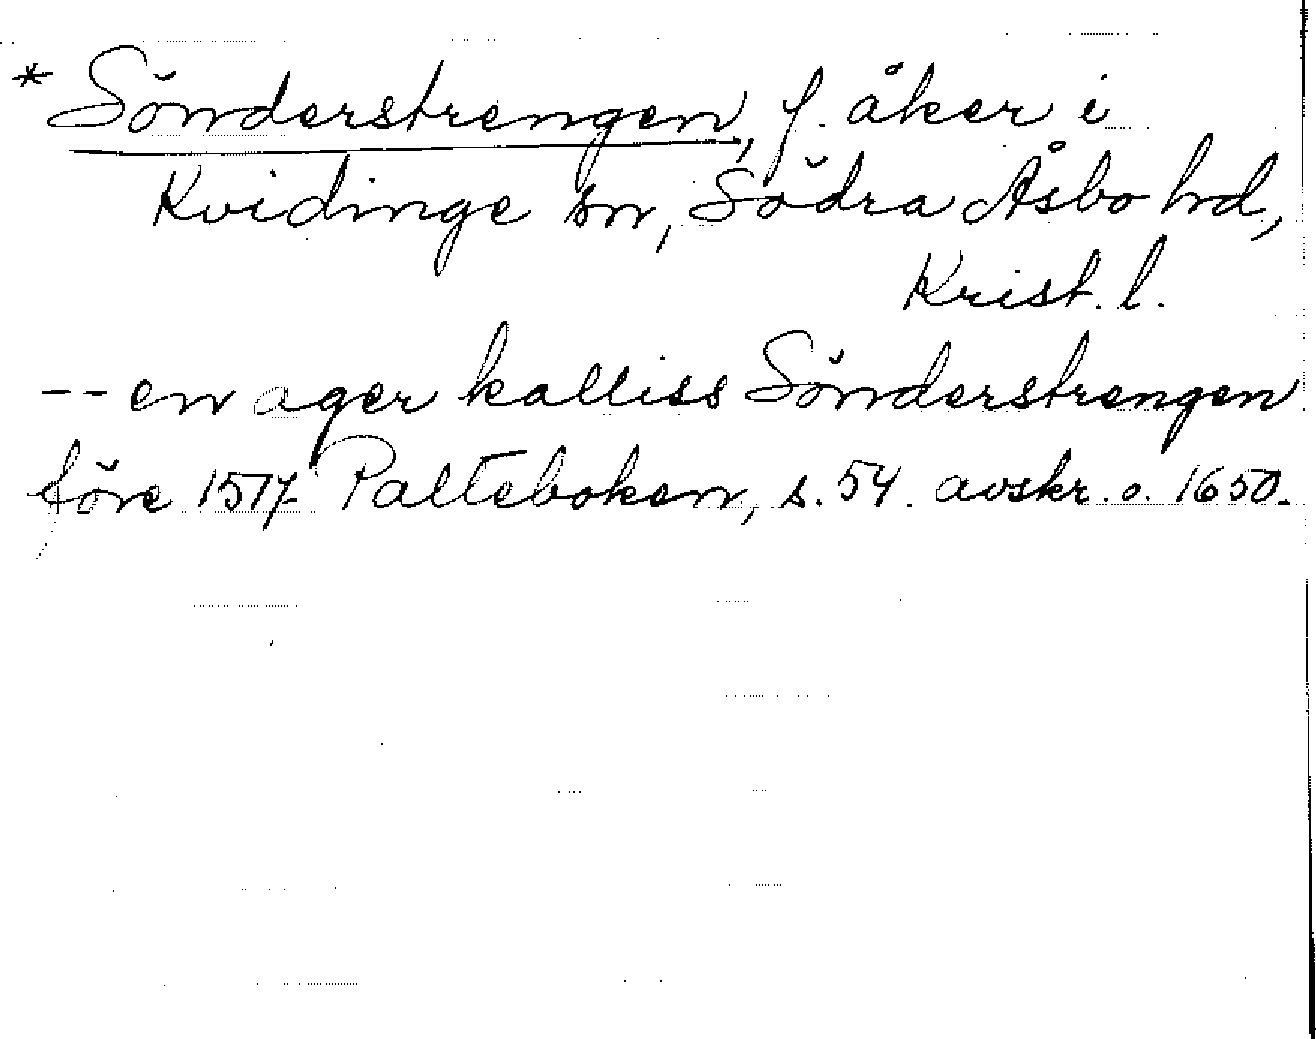 * Sönderstrengen, f. åker i
Kvidinge sn, Södra Åsbo hd,
Krist. l.
-- en ager kalliss Sönderstrengen
före 1517 Palteboken, s. 54. avskr. o. 1650.